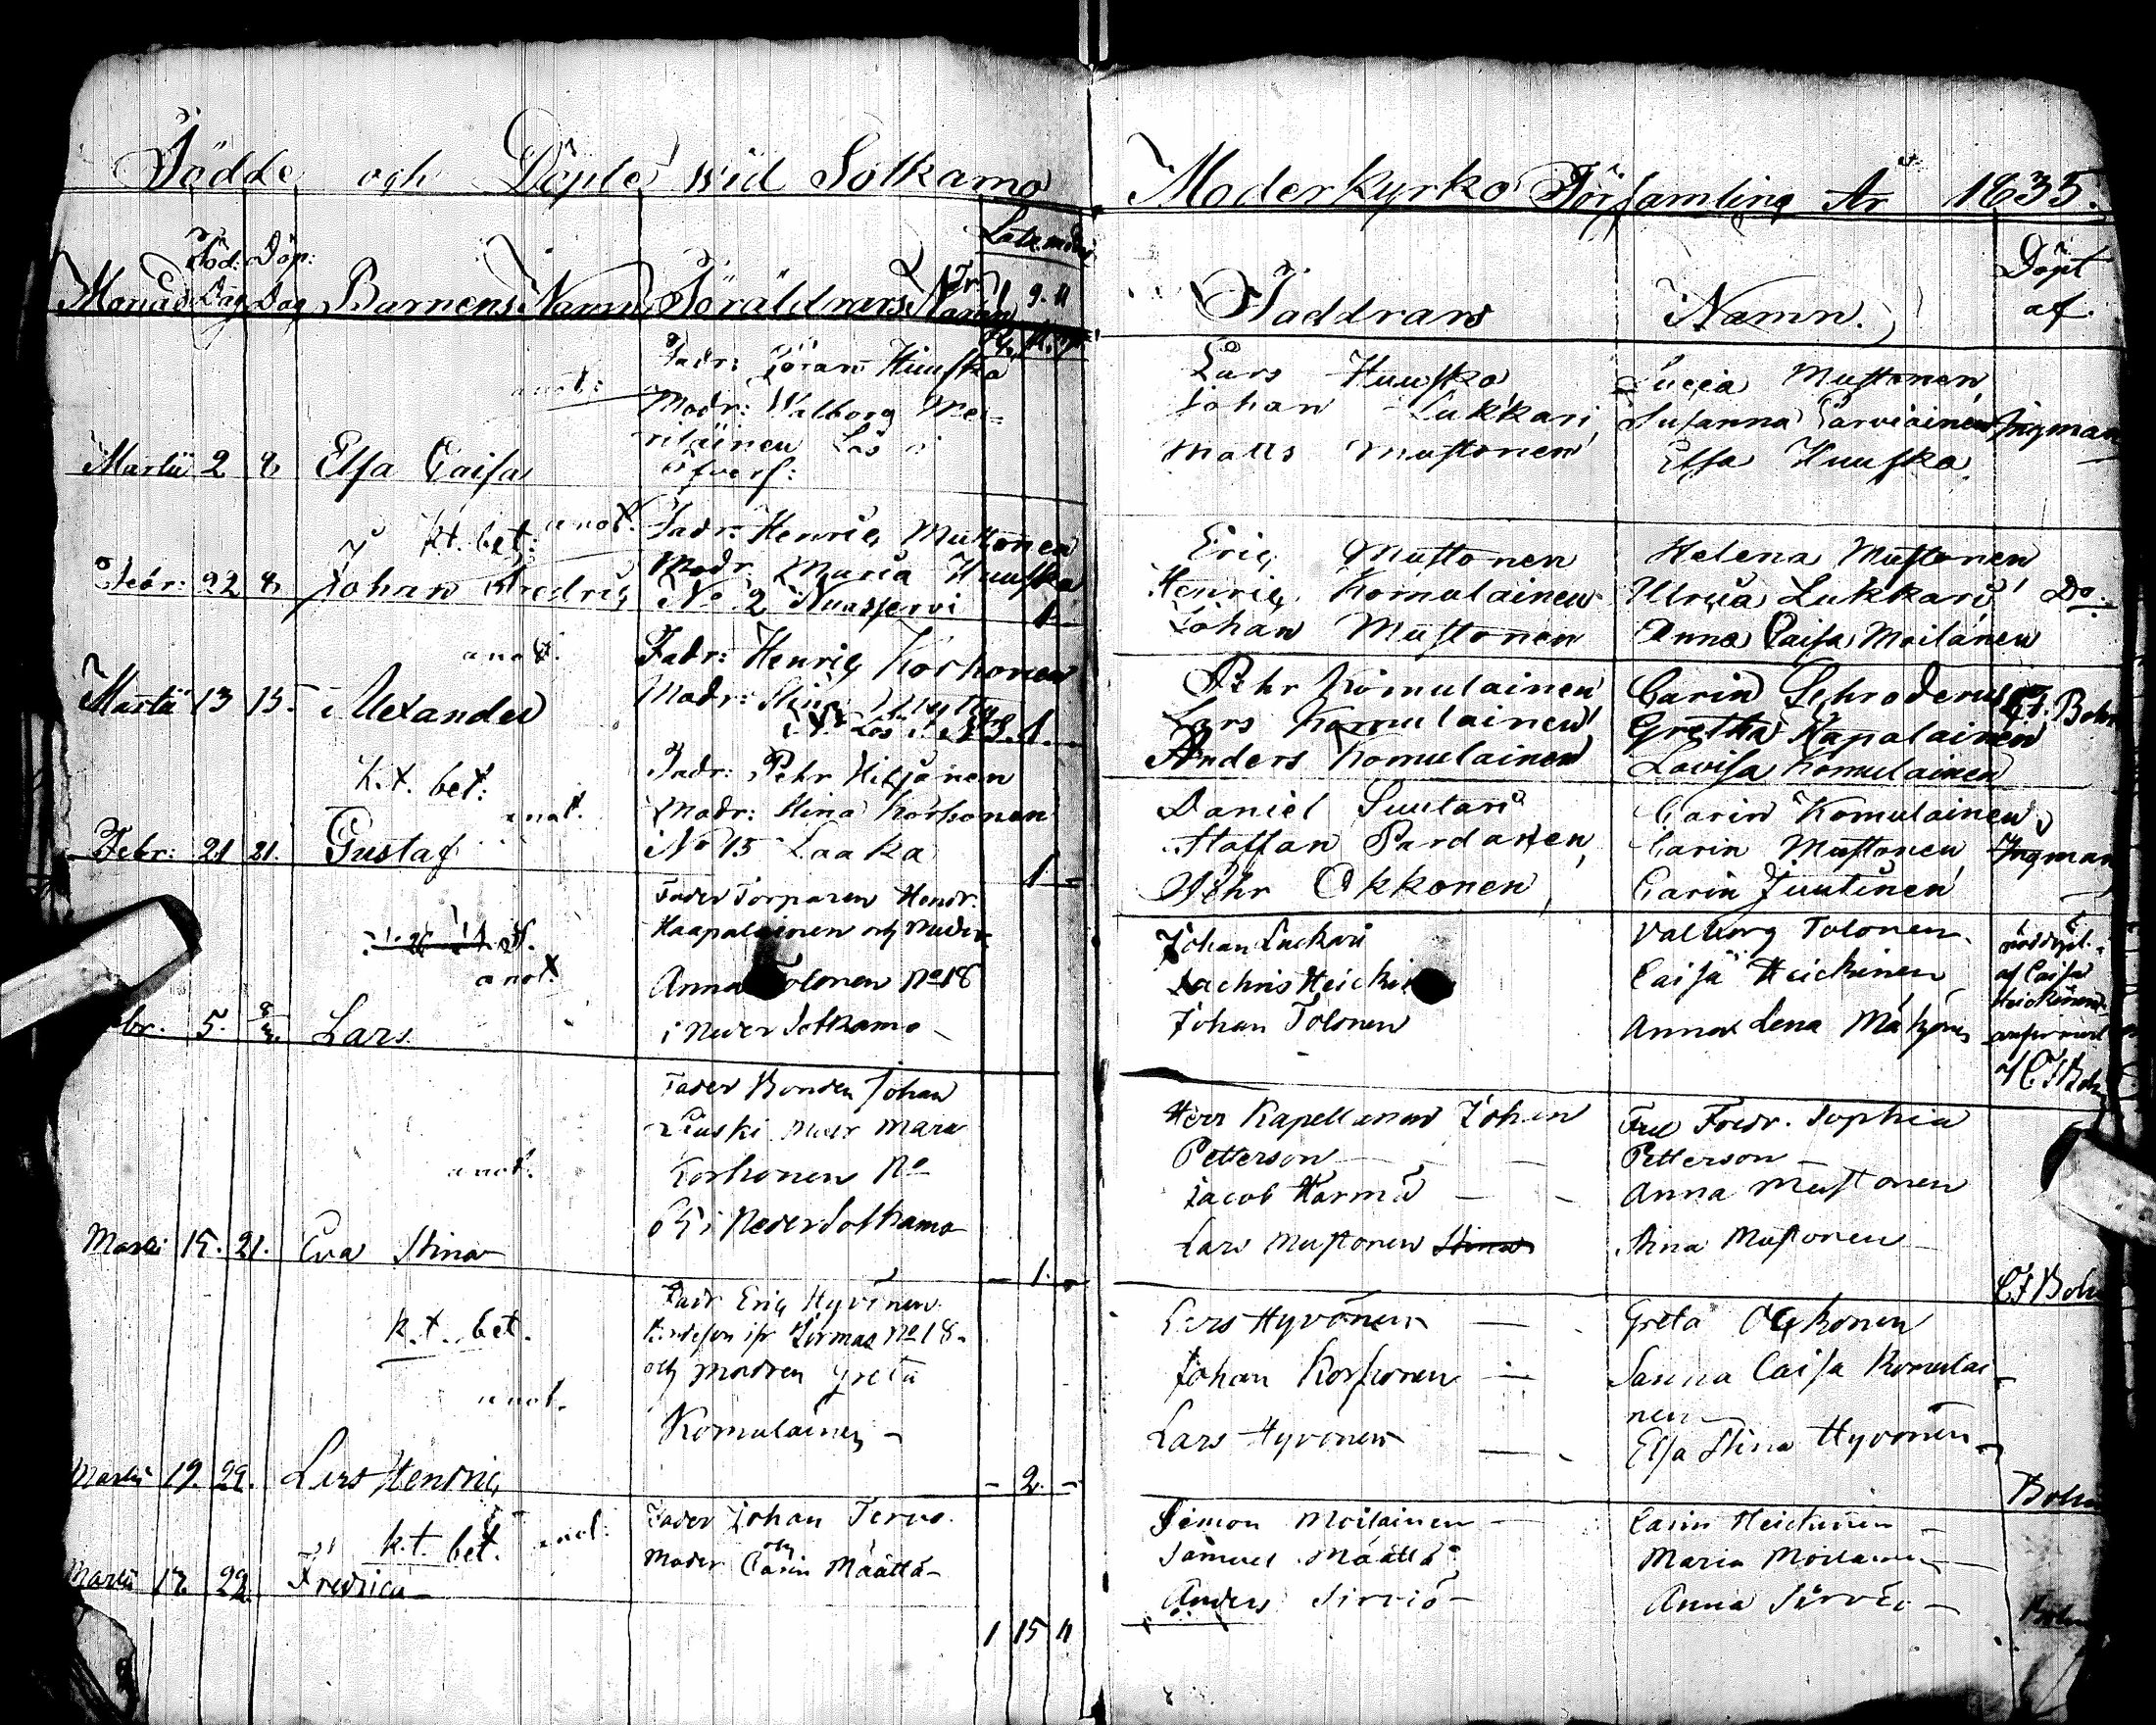 Födde och Döpte wid Sotkamo
Moderkyrko Församling År 1835.
Månad Föd: Dag Döp: Dag Barnens Namn Föräldrars Namn
Faddrars Namn. Döpt af.
anot:
Fadr: Göran Huuska
Modr: Walborg Me=
riläinen Lös i
öfverf:
Martii 2 8 Elsa Caisa
Lars Huuska Lucia Mustonen
Johan Lukkari Susanna Parviainen Ingman
Matts Mustonen Elsa Huuska
kt. bet: anot.
Fadr: Henric Mustonen
Modr Maria Huuska
Febr: 22 8 Johan Fredric No 2 Nuasjervi 1
Eric Mustonen Helena Mustonen
Henric Komulainen Ulrica Lukkari Do.
Johan Mustonen Anna Caisa Moilanen
anot.
Fadr: Henric Korhonen
Modr: Stina
Martii 13 15. Alexander 1.
Pehr Komulainen Carin Schroderus Bohm
Lars Komulainen Gretha Kapalainen
Anders Komulainen Lovisa Komulainen
k.t. bet:
anot.
Fadr: Pehr Hiljanen
Modr: Stina Korhonen
Febr: 21 21. Gustaf No 15 Laaka 1 -
Daniel Suutari Carin Komulainen
Staffan Pardanen Carin Mustonen Ingman
Pehr Okkonen Carin Juutinen
anot.
Fader Torparen Henr.
Haapalainen och Moder
Anna Tolonen No 18
i Neder Sotkamo
5. Lars
Johan Luckari Valborg Tolonen nöddöpt
Caisa Heickinen af Caisa
Heickinen
Johan Tolonen Anna Lena
anot.
Fader Bonden Johan
Modr Maria
Korhonen No
i Neder Sotkamo
Martii 15. 21. Eva Stina - 1. -
Herr Kapellanen Johan Petterson Fru Fredr. Sophia Petterson
Jacob Anna Mustonen
Lars Mustonen Stina Mustonen
CF Bohm
k.t. bet.
anot.
Fadr Eric Hyvönen
No 18
och modren Greta
Komulainen
Martii 19. 22. Lars Henric - 2. -
Lars Hyvönen Greta Ockonen
Johan Korhonen Sanna Caisa Komulai-
nen
Lars Hyvönen Elsa Stina Hyvönen
Bohm
k.t. bet. anot:
Fader Johan Tervo
och
Moder Carin Määttä
Martii 17. 22. Fredrica
Simon Moilainen Carin Heickinen
Samuel Määttä Maria Moilanen
Anders Sirviö Anna Sirviö
1 15 11